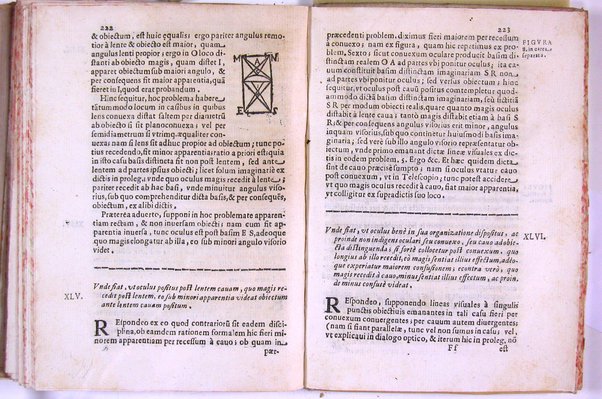 222
& obiectum, est huic ęqualis; ergo pariter angulus remo-
tior à lente & obiecto est maior, quam
angulus lenti propior; ergo in O loco di-
stanti ab obiecto magis, quam distet I,
apparet obiectum sub maiori angulo, &
per consequens sit maior apparentia, quã
fieret in I, quod erat probandum.
Hinc sequitur, hoc problema habere
tãtummodo locum in casibus in quibus
lens conuexa distat saltem per diametrũ
ab obiecto si sit planoconuexa; vel per
semidiametrum si vtrinq. æqualiter con-
M N
O
I
E S
uexa: nam si lens sit adhuc propior ad obiectum; tunc po-
tius recedendo, sit minor apparentia: ratio à priori est quia
in isto casu basis distincta sit non post lentem, sed ante
lentem ad partes ipsius obiecti; licet solum imaginariè ex
dictis in proleg: vnde quo oculus magis recedit à lente;
pariter recedit ab hac basi, vnde minuitur angulus viso-
rius, sub quo comprehenditur dicta basis, & per consequẽs,
obiectum, ex alibi dictis.
Præterea aduerto, supponi in hoc problemate apparen-
tiam rectam, & non inuersam obiecti: nam cum sit ap-
parentia inuersa, tunc oculus est post basim E S, adeoque
quò magis elongatur ab illa, eo sub minori angulo visorio
videt.
XLV.
Vnde fiat, vt oculus positus post lentem cauam, quo magis re-
cedit post lentem, eo sub minori apparentia videat obiectum
ante lentem cauam positum.
REspondeo ex eo quod contrariorũ sit eadem disci-
plina, ob eamdem rationem formalem hic fieri mi-
norem apparentiam per recessum à cauo; ob quam in
præ-
223
præcedenti problem. diximus fieri maiorem per recessum
à conuexo; nam ex figura, quam hic repetimus ex pro-
blem. Sexto; sicut conuexum oculare producit basim di-
stinctam realem O A ad partes vbi ponitur oculus; ita ca-
uum constituit basim distinctam imaginariam S R non
ad partes vbi ponitur oculus; sed versus obiectum; hinc
sequitur, vt oculus post cauũ positus comtempletur quod-
ammodo dictã basim distinctam imaginariam, seu pictũrã
S R per modum obiecti realis, quare quanto magis oculus
distabit à lente caua; tantò magis distabit etiam à basi S
R; & per consequens angulus visorius erit minor, angulus
inquam visorius, sub quo continetur huiusmodi basis ima-
ginaria; sed verè sub illo angulo visorio repræsentatur ob-
iectum, sub quo videntur dictæ lineæ visuales ex dic-
tis in eodem problem. 5. Ergo &c. Et hæc quidem dicta
sint de cauo præcisè sumpto; nam si oculus vtatur cauo
post conuexum, vt in Telescopio, tunc potest accidere
vt quo magis oculus recedit à cauo, fiat maior apparentia,
vt colligitur ex supradictis suo loco.
FIGVRA
8. in carta
separata.
XLVI.
Vnde fiat, vt oculus benè in sua organizatione dispositus, ac
proinde non indigens oculari seu conuexo, seu cauo ad obie-
cta distinguenda; si fortè collocetur post conuexum, quo
longius ab illo recedit, eò magis sentiat illius effectum, adeo-
que experiatur maiorem confusionem; econtra verò, quo
magis recedit à cauo, minus sentiat illius effectum, ac proin-
de minus confusè videat.
REspondeo, supponendo lineas visuales à singulis
punctis obiectiuis emanantes in tali casu fieri per
conuexum conuergentes; per cauum autem diuergentes;
(nam si fiant parallelæ, tunc vel non sumus in casu; vel,
vt explicaui in dialogo optico, & iterum hic in proleg. nõ
F f est